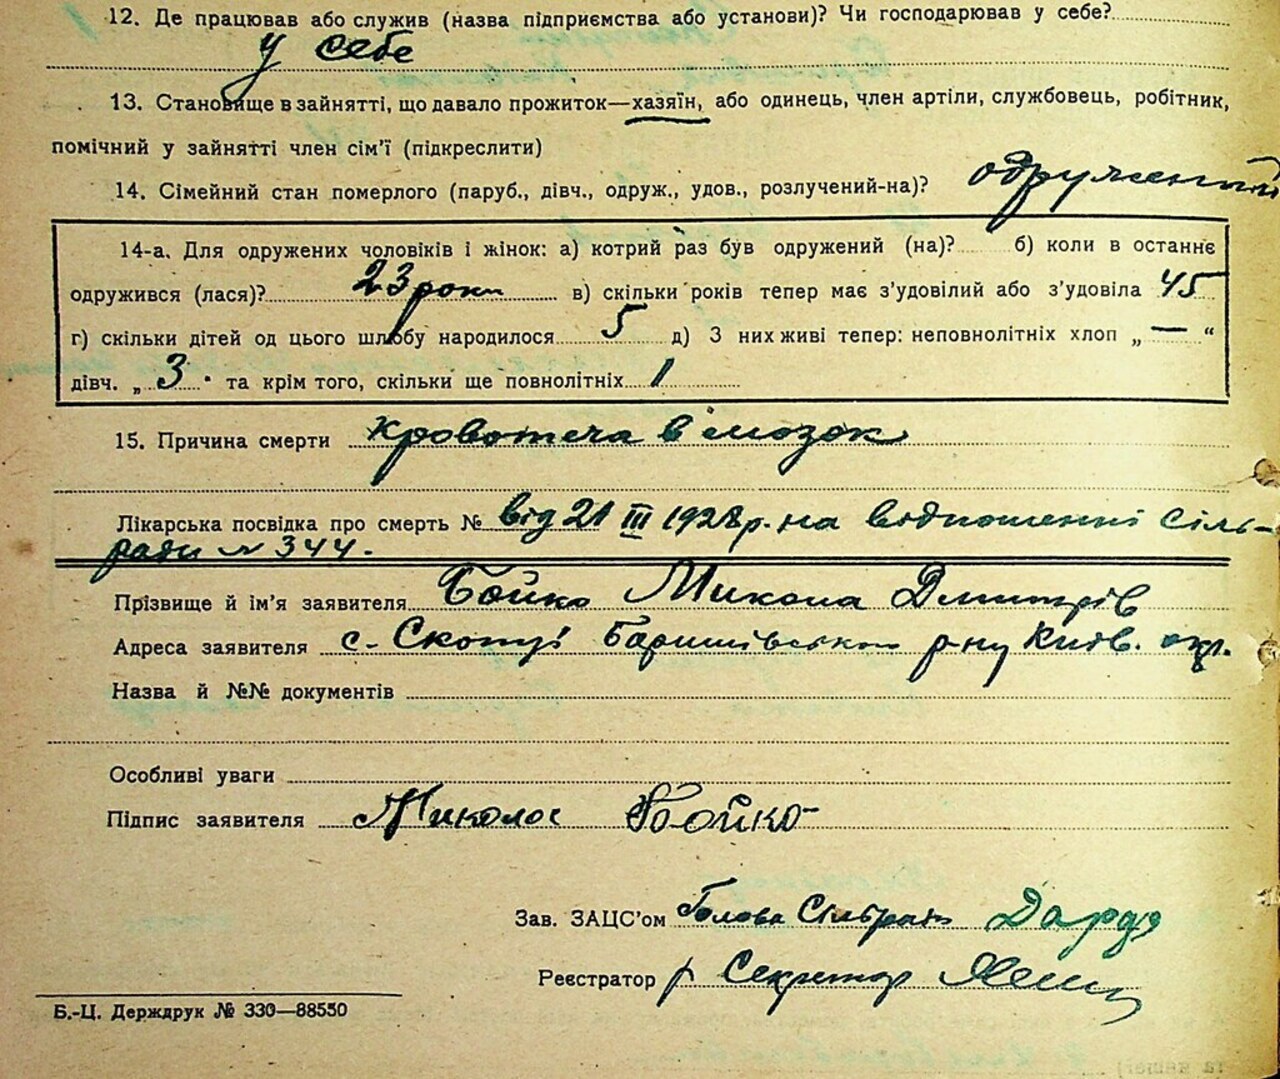 12. Де працював або служив (назва підприємства або установи)? Чи господарював у себе?
у себе
13. Становище в зайнятті, що давало прожиток—хазяїн, або одинець, член артілі, службовець, робітник,
помічний у зайнятті член сім'ї (підкреслити)
14. Сімейний стан померлого (паруб., дівч., одруж., удов., розлучений-на)? одружений
14-а. Для одружених чоловіків і жінок: а) котрий раз був одружений (на)? б) коли в останнє
одружився (лася)? 23 роки в) скільки років тепер має з'удовілий або з'удовіла 45
г) скільки дітей од цього шлюбу народилося 5 д) З них живі тепер: неповнолітніх хлоп „ — “
дівч. „ 3 " та крім того, скільки ще повнолітніх 1
15. Причина смерти кровотеча в мозок
Лікарська посвідка про смерть № від 21 III 1928 р. на відношенні сіль-
ради № 344.
Прізвище й ім'я заявителя Бойко Микола Дмитрів
Адреса заявителя с. Скопці Баришівського р-ну Київ. окр.
Назва й №№ документів
Особливі уваги
Підпис заявителя Микола Бойко
Зав. ЗАЦС'ом Голова Сільради
Реєстратор Секретар
Б.-Ц. Держдрук № 330—88550